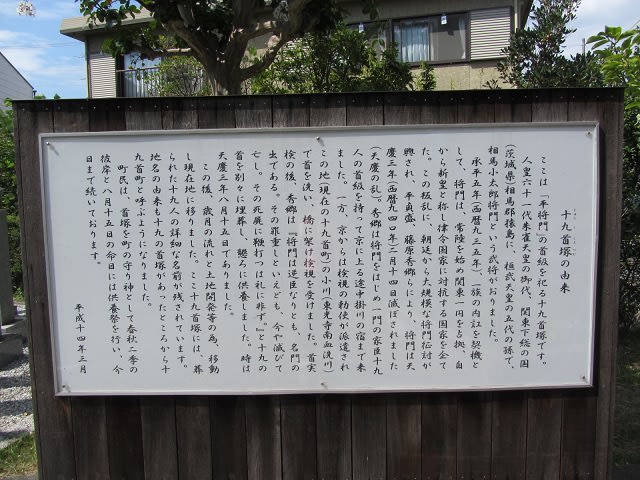 十九首塚の由来
ここは「平将門」の首級を祀る十九首塚です。
人皇六十一代朱雀天皇の御代、関東下総の国
（茨城県相馬郡猿島に、桓武天皇の五代の孫で、
相馬小太郎将門という武将がおりました。
承平五年（西暦九三五年）、一族の内訌を契機と
して、将門は、常陸を始め関東一円を占拠、自
から新皇と称し律令国家に対抗する国家を企て
た。この叛乱に、朝廷から大規模な将門征討が
興され、平貞盛、藤原秀郷らにより、将門は天
慶三年（西暦九四〇年）二月十四日滅ぼされました
（天慶の乱）。秀郷は将門をはじめ一門の家臣十九
人の首級を持って京に上る途中掛川の宿まで来
ました。一方、京からは検視の勅使が派遣され
この地（現在の十九首町）の小川（東光寺南血洗川）
で首を洗い、橋に架け検視を受けました。首実
検の後、秀郷は『将門は逆臣なりとも、名門の
出である。その罪重しといえども、今や滅びて
亡し。その死屍に鞭打つは礼に非ず。』と十九の
首を別々に埋葬し、懇ろに供養しました。時は
天慶三年八月十五日でありました。
この後、歳月の流れと土地開発等の為、移動
し現在地に移りました。ここ十九首塚には、葬
られた十九人の詳細な名前が残されています。
地名の由来も十九の首塚があったところから十
九首町と呼ぶようになりました。
町民は、首塚を町の守り神として春秋二季の
彼岸と八月十五日の命日には供養祭を行い、今
日まで続いております。
平成十四年三月